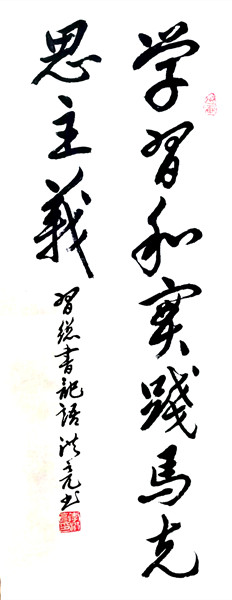 学習和實踐馬克
思主義
習總書記語 洪亮书